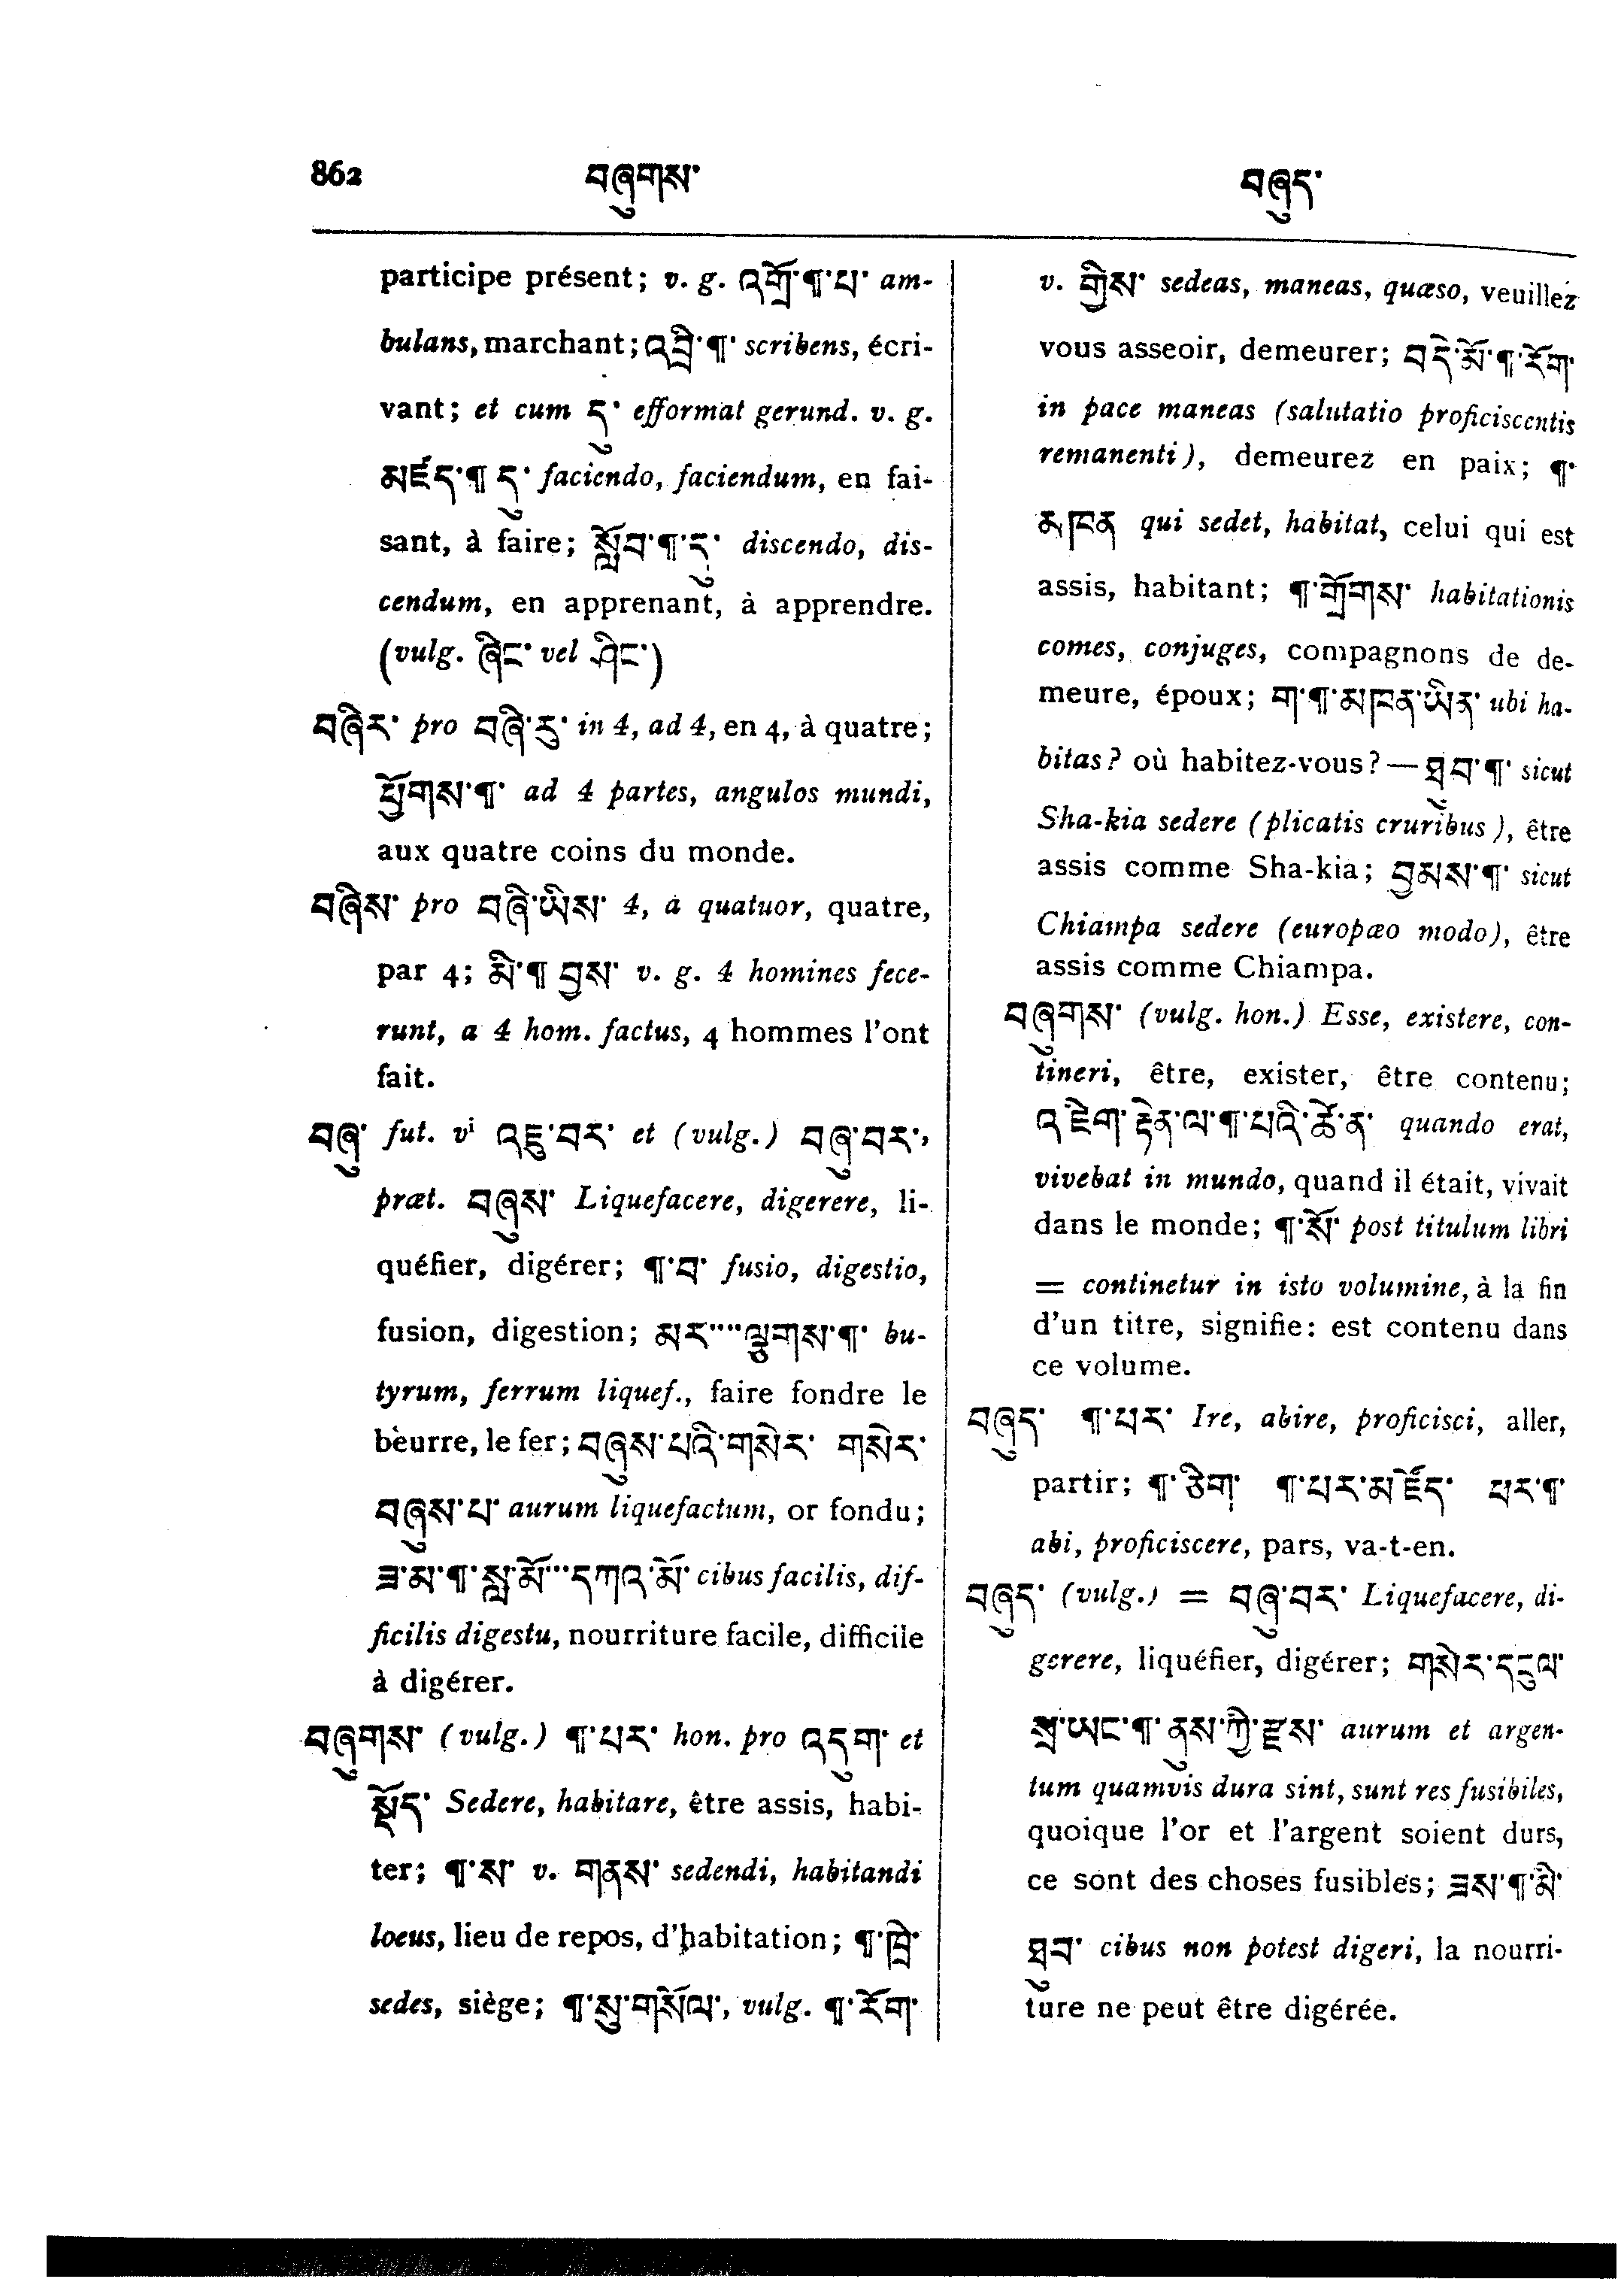 862 བཞུགས་ བཞུད་
participe présent; v. g. འགྲོ་¶་པ་ am-
bulans, marchant; འབྲི་¶་ scribens, écri-
vant; et cum དུ་ efformat gerund. v. g.
མཛད་¶ དུ་ faciendo, faciendum, en fai-
sant, à faire; སློབ་¶་དུ་ discendo, dis-
cendum, en apprenant, à apprendre.
(vulg. ཞིང་ vel ཤིང་)
བཞིར་ pro བཞི་རུ་ in 4, ad 4, en 4, à quatre;
ཕྱོགས་¶་ ad 4 partes, angulos mundi,
aux quatre coins du monde.
བཞིས་ pro བཞི་ཡིས་ 4, a quatuor, quatre,
par 4; མི་¶ བྱས་ v. g. 4 homines fece-
runt, a 4 hom. factus, 4 hommes l'ont
fait.
བཞུ་ fut. vi འཇུ་བར་ et (vulg.) བཞུ་བར་,
præt. བཞུས་ Liquefacere, digerere, li-
quéfier, digérer; ¶་བ་ fusio, digestio,
fusion, digestion; མར་་་་ལྕགས་¶་ bu-
tyrum, ferrum liquef., faire fondre le
beurre, le fer; བཞུས་པའི་གསེར་ གསེར་
བཞུས་པ་ aurum liquefactum, or fondu;
ཟ་མ་¶་སླ་མོ་་་དཀའ་མོ་ cibus facilis, dif-
ficilis digestu, nourriture facile, difficile
à digérer.
བཞུགས་ (vulg.) ¶་པར་ hon. pro འདུག་ et
སྡོད་ Sedere, habitare, être assis, habi-
ter; ¶་ས་ v. གནས་ sedendi, habitandi
locus, lieu de repos, d'habitation; ¶་ཁྲི་
sedes, siège; ¶་སུ་གསོལ་, vulg. ¶་རོག་
v. གྱིས་ sedeas, maneas, quæso, veuillez
vous asseoir, demeurer; བདེ་མོ་¶་རོག་
in pace maneas (salutatio proficiscentis
remanenti), demeurez en paix; ¶་
མཁན qui sedet, habitat, celui qui est
assis, habitant; ¶་གྲོགས་ habitationis
comes, conjuges, compagnons de de-
meure, époux; ག་¶་མཁན་ཡིན་ ubi ha-
bitas? où habitez-vous? — ཐུབ་¶་ sicut
Sha-kia sedere (plicatis cruribus), être
assis comme Sha-kia; བྱམས་¶་ sicut
Chiampa sedere (europæo modo), être
assis comme Chiampa.
བཞུགས་ (vulg. hon.) Esse, existere, con-
tineri, être, exister, être contenu;
འཇིག་རྟེན་ལ་¶་པའི་ཚེ་ན་ quando erat,
vivebat in mundo, quand il était, vivait
dans le monde; ¶་སོ་ post titulum libri
= continetur in isto volumine, à la fin
d'un titre, signifie: est contenu dans
ce volume.
བཞུད་ ¶་པར་ Ire, abire, proficisci, aller,
partir; ¶་ཅིག་ ¶་པར་མཛོད་ ཕར་¶་
abi, proficiscere, pars, va-t-en.
བཞུད་ (vulg.) = བཞུ་བར་ Liquefacere, di-
gerere, liquéfier, digérer; གསེར་དངུལ་
སྲ་ཡང་¶་ནུས་ཀྱི་རྫས་ aurum et argen-
tum quamvis dura sint, sunt res fusibiles,
quoique l'or et l'argent soient durs,
ce sont des choses fusibles; ཟས་¶་མི་
ཐུབ་ cibus non potest digeri, la nourri-
ture ne peut être digérée.